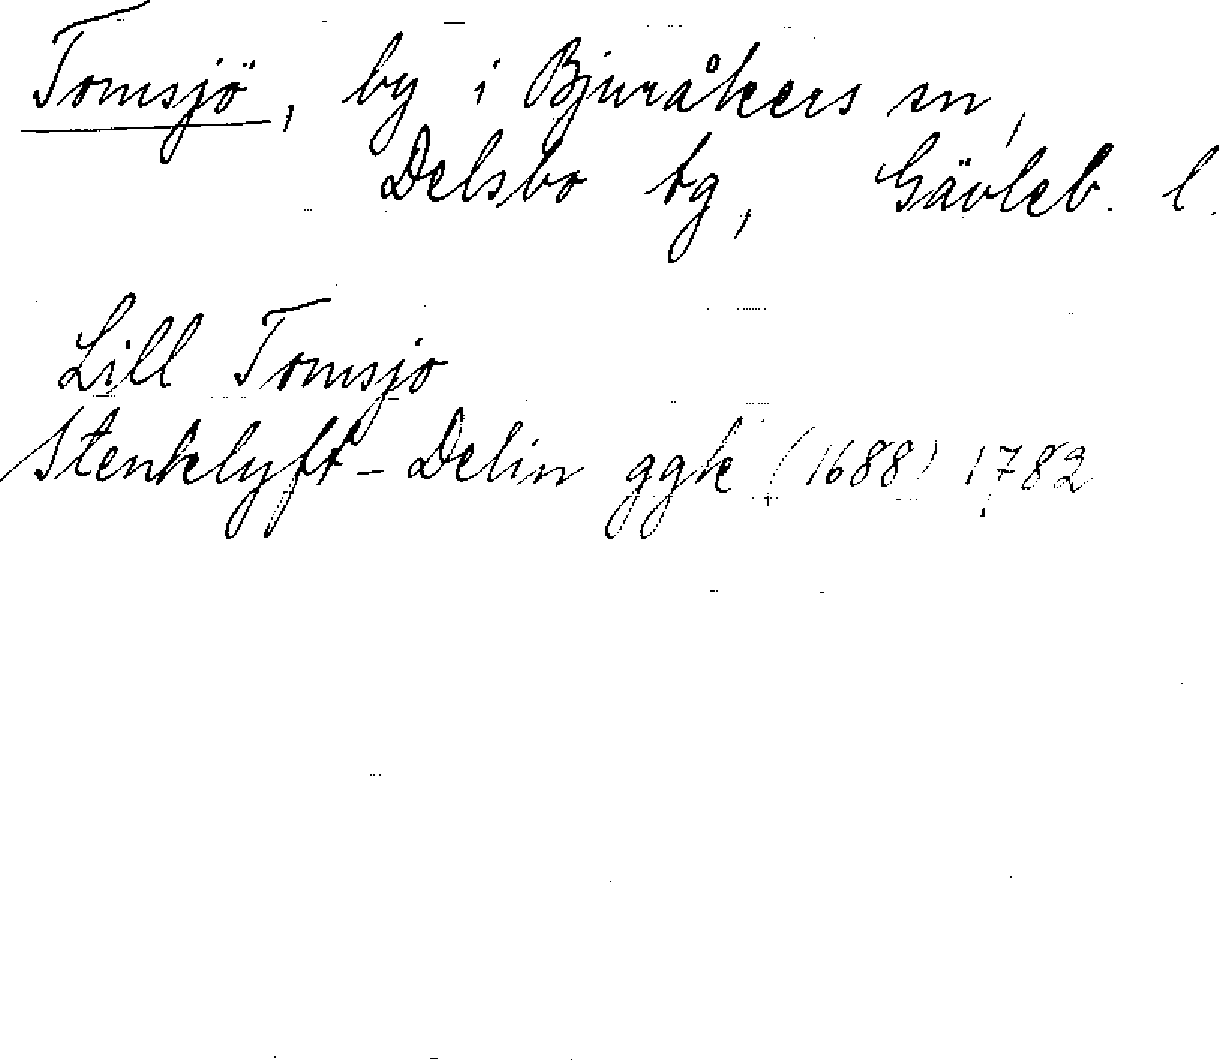 Tomsjö, by i Bjuråkers sn,
Delsbo tg, Gävleb. l.
Lill Tomsjo
Stenklyft - Delin ggk (1688) 1782